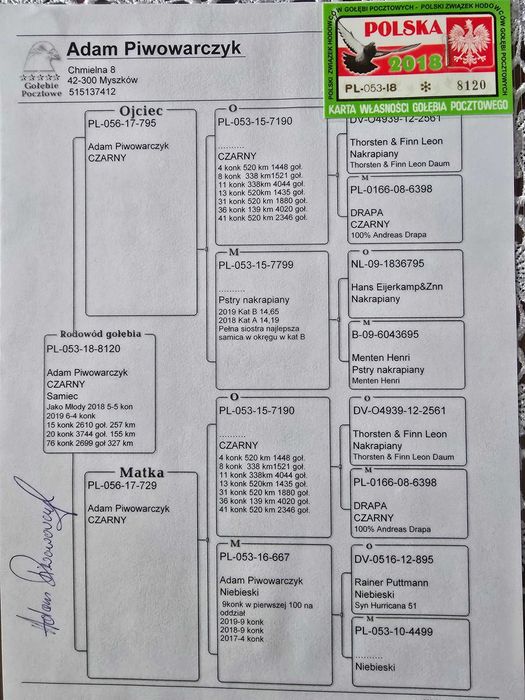 Adam Piwowarczyk
Chmielna 8
42-300 Myszków
515137412
Gołębie
Pocztowe
POLSKI ZWIĄZEK HODOWCÓW GOŁĘBI POCZTOWYCH - POLSKI ZWIĄZEK HODOWCÓW GOŁĘBI POCZTOWYCH
POLSKA
2018
PL-053-18 * 8120
KARTA WŁASNOŚCI GOŁĘBIA POCZTOWEGO
Rodowód gołębia
PL-053-18-8120
Adam Piwowarczyk
CZARNY
Samiec
Jako Młody 2018 5-5 kon
2019 6-4 konk
15 konk 2610 goł. 257 km
20 konk 3744 goł. 155 km
76 konk 2699 goł 327 km
Ojciec
PL-056-17-795
Adam Piwowarczyk
CZARNY
Matka
PL-056-17-729
Adam Piwowarczyk
CZARNY
O
PL-053-15-7190
..........
CZARNY
4 konk 520 km 1448 goł.
8 konk 338 km1521 goł.
11 konk 338km 4044 goł.
13 konk 520km 1435 goł.
31 konk 520 km 1880 goł.
36 konk 139 km 4020 goł.
41 konk 520 km 2346 goł.
M
PL-053-15-7799
..........
Pstry nakrapiany
2019 Kat B 14,65
2018 Kat A 14,19
Pełna siostra najlepsza
samica w okręgu w kat B
O
PL-053-15-7190
..........
CZARNY
4 konk 520 km 1448 goł.
8 konk 338 km1521 goł.
11 konk 338km 4044 goł.
13 konk 520km 1435 goł.
31 konk 520 km 1880 goł.
36 konk 139 km 4020 goł.
41 konk 520 km 2346 goł.
M
PL-053-16-667
Adam Piwowarczyk
Niebieski
9konk w pierwszej 100 na
oddział
2019-9 konk
2018-9 konk
2017-4 konk
DV-O4939-12-2561
Thorsten & Finn Leon
Nakrapiany
Thorsten & Finn Leon Daum
M
PL-0166-08-6398
DRAPA
CZARNY
100% Andreas Drapa
O
NL-09-1836795
Hans Eijerkamp&Znn
Nakrapiany
M
B-09-6043695
Menten Henri
Pstry nakrapiany
Menten Henri
O
DV-O4939-12-2561
Thorsten & Finn Leon
Nakrapiany
Thorsten & Finn Leon Daum
M
PL-0166-08-6398
DRAPA
CZARNY
100% Andreas Drapa
O
DV-0516-12-895
Rainer Puttmann
Niebieski
Syn Hurricana 51
M
PL-053-10-4499
..........
Niebieski
Adam Piwowarczyk